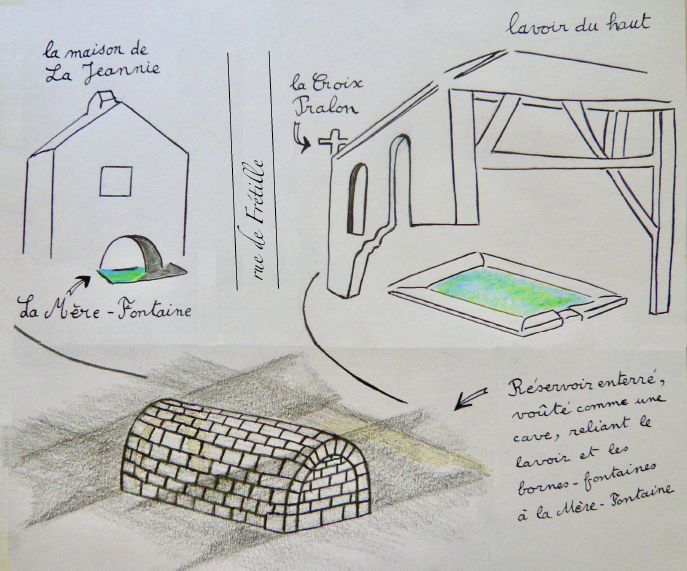 la maison de
La Jeannie
La Mère-Fontaine
rue de Frétille
la Croix
Pralon
lavoir du haut
Réservoir enterré,
voûté comme une
cave, reliant le
lavoir et les
bornes-fontaines
à la Mère-Fontaine